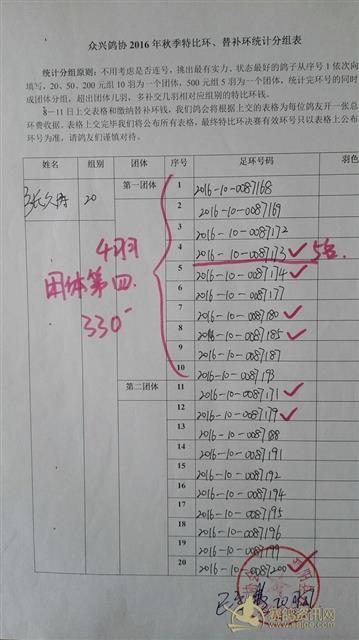 众兴鸽协 2016 年秋季特比环、替补环统计分组表
统计分组原则：不用考虑是否连号，挑出最有实力、状态最好的鸽子从序号 1 依次向
填写，20、50、200 元组 10 羽为一个团体，500 元组 5 羽为一个团体，统计完环号的同时
成团体分组，超出团体几羽，多补交几羽相对应组别的特比环钱。
8-11 日上交表格和缴纳替补环钱，我们鸽会将根据上交的表格为每位鸽友开一张总
环费收据。表格上交完毕我们将公布所有表格，最终特比环决赛有效环号只以表格上公布
环号为准，请鸽友们谨慎对待。
姓名 组别 团体 序号 足环号码 羽色
20 第一团体 1 2016-10-0087168
2 2016-10-0087169
3 2016-10-0087172
4 2016-10-0087173 5名
4羽 5 2016-10-0087174
团体第四 6 2016-10-0087177
330 7 2016-10-0087180
8 2016-10-0087185
9 2016-10-0087187
10 2016-10-0087193
第二团体 11 2016-10-0087171
12 2016-10-0087179
13 2016-10-0087188
14 2016-10-0087191
15 2016-10-0087192
16 2016-10-0087194
17 2016-10-0087195
18 2016-10-0087196
19 2016-10-0087199
20 2016-10-0087200